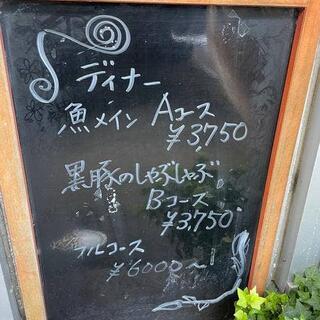 ディナー
魚メイン Aコース
¥3,750
黒豚のしゃぶしゃぶ。
Bコース
¥3,750
フルコース
¥6000〜